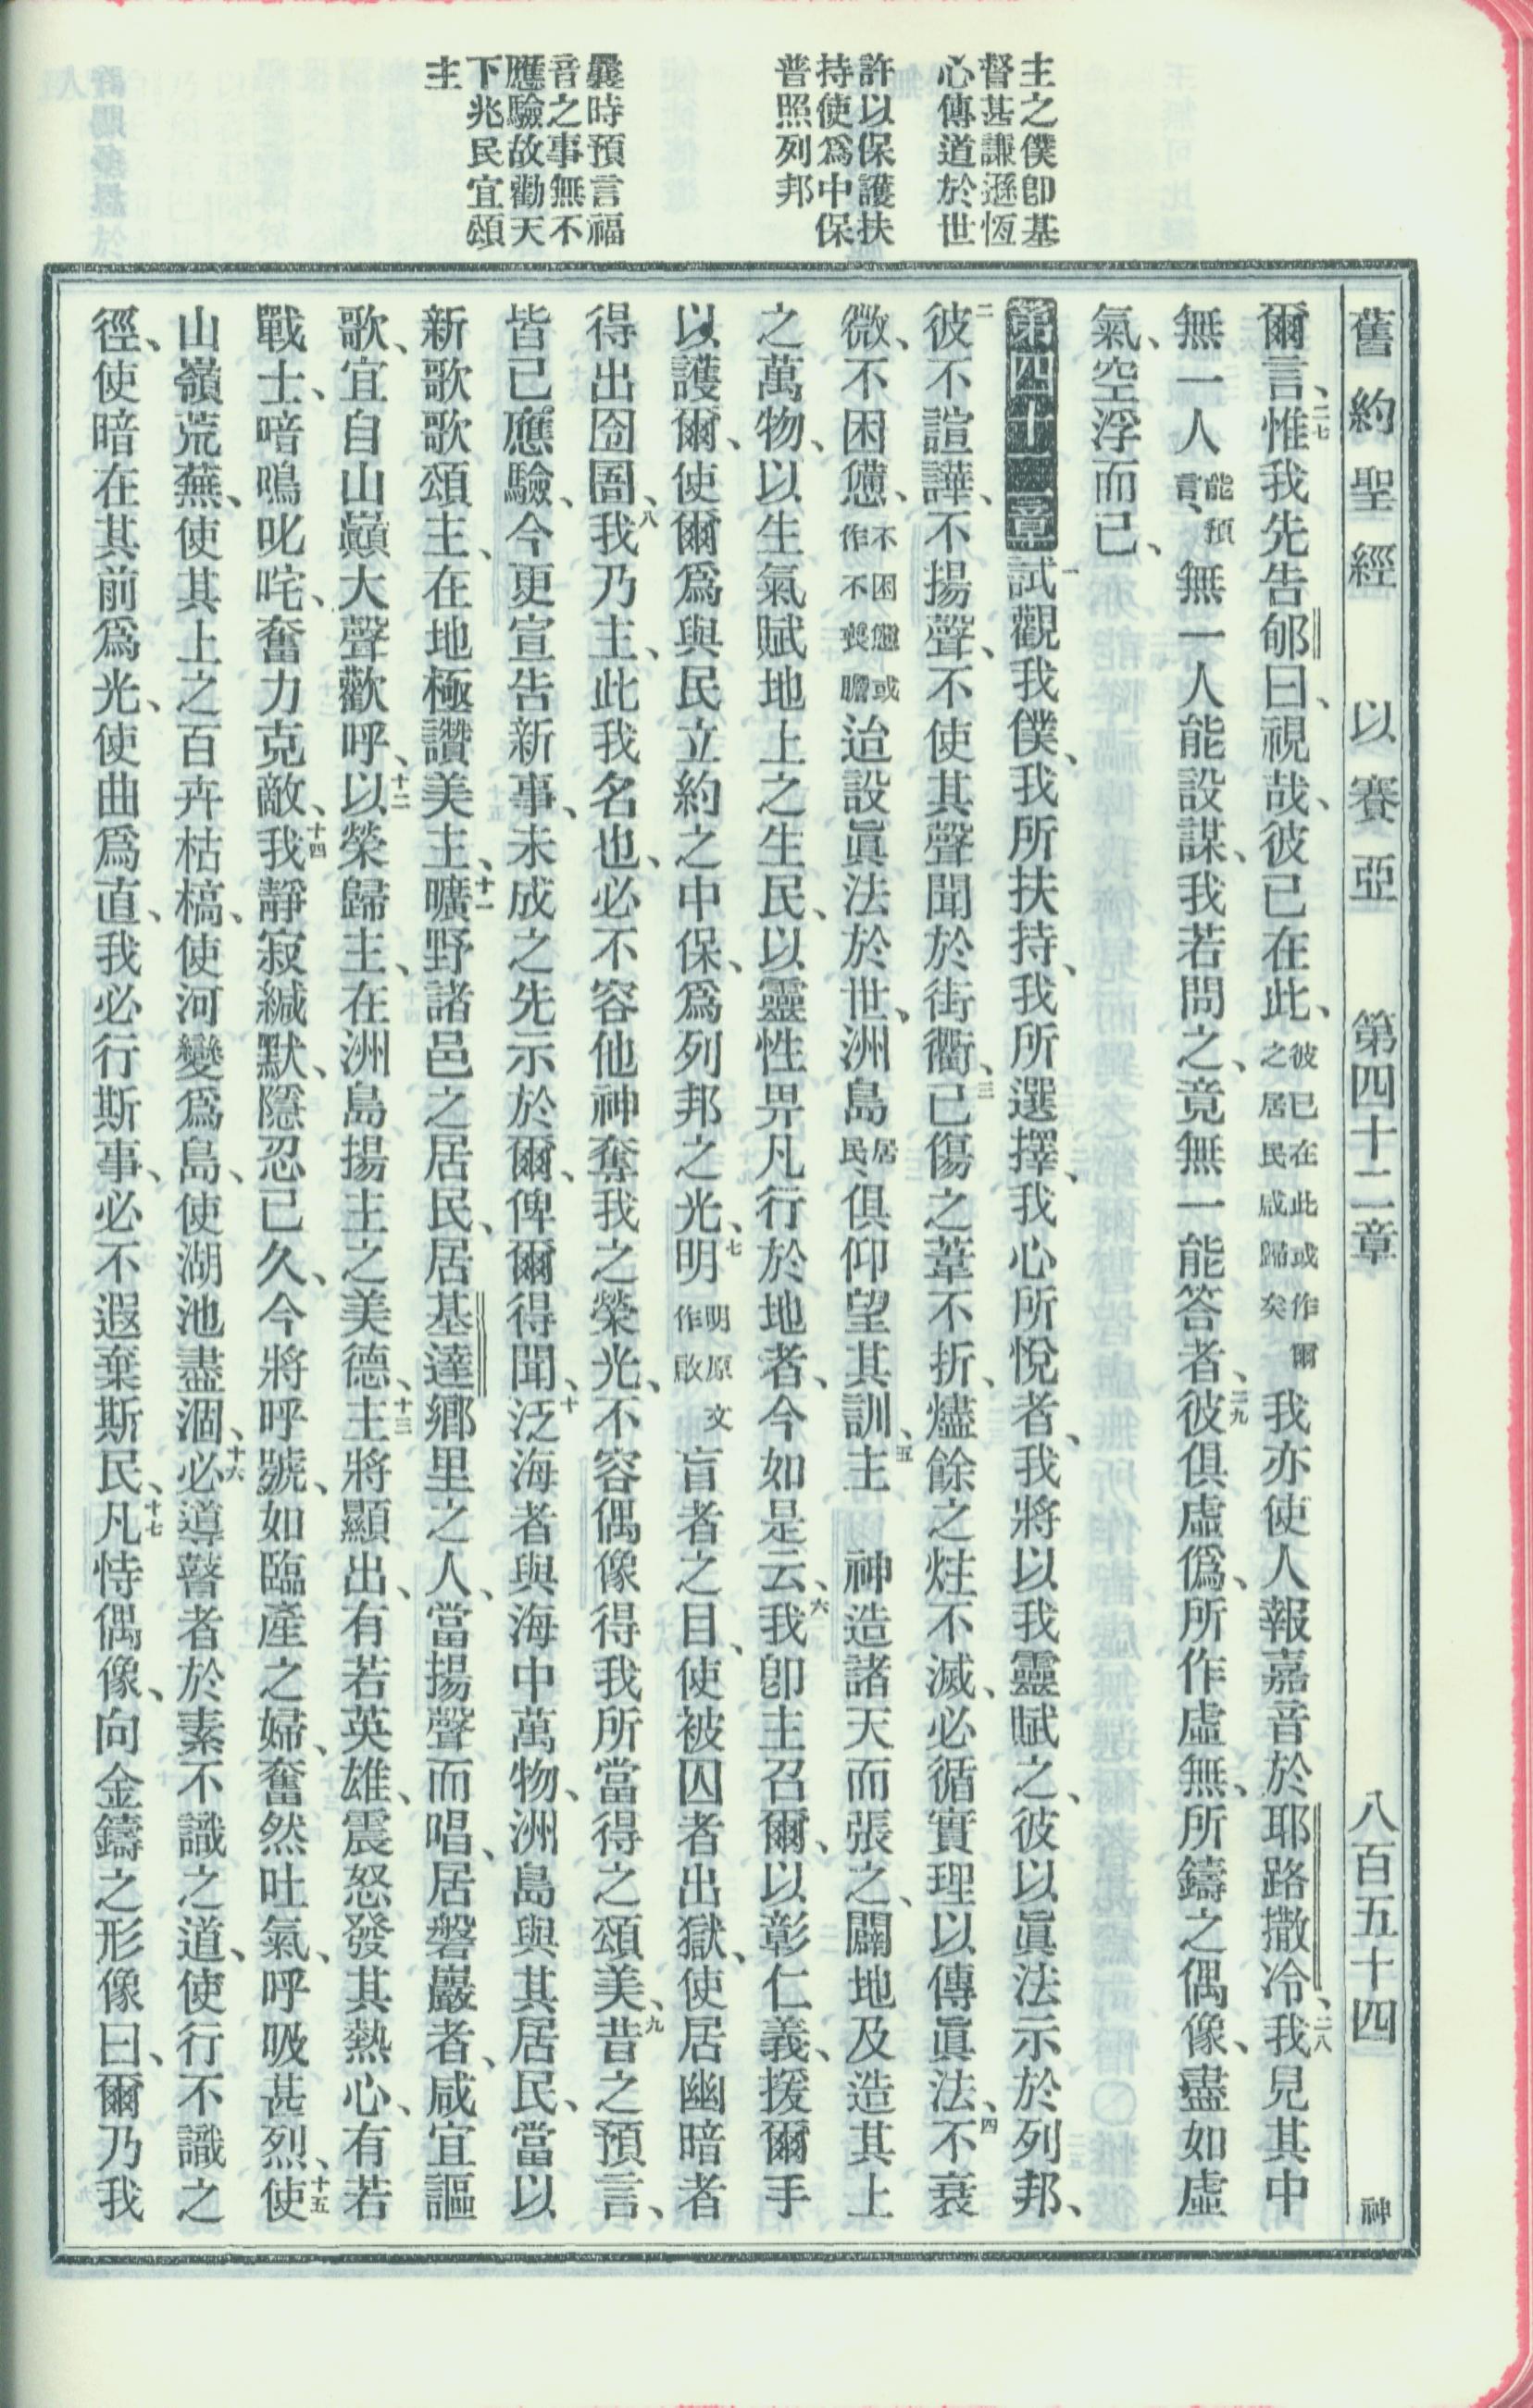 舊約聖經 以賽亞 第四十二章 八百五十四 神
主之僕卽基
督甚謙遜恆
心傳道於世
許以保護扶
持使爲中保
普照列邦
曩時預言福
音之事無不
應驗故勸天
下兆民宜頌
主
爾言、二七惟我先告郇曰、視哉、彼已在此、彼已在此或作爾之居民咸歸矣我亦使人報嘉音於耶路撒冷、二八我見其中
無一人能預言、無一人能設謀、我若問之、竟無一能答者、二九彼俱虛僞、所作虛無、所鑄之偶像、盡如虛
氣、空浮而已、
第四十二章 一試觀我僕、我所扶持、我所選擇、我心所悅者、我將以我靈賦之、彼以眞法示於列邦、
二彼不諠譁、不揚聲、不使其聲聞於街衢、三已傷之葦不折、燼餘之炷不滅、必循實理以傳眞法、四不衰
微、不困憊、不困憊或作不喪膽迨設眞法於世、洲島居民、俱仰望其訓、五主 神造諸天而張之、闢地及造其上
之萬物、以生氣賦地上之生民、以靈性畀凡行於地者、今如是云、六我卽主召爾、以彰仁義、援爾手
以護爾、使爾爲與民立約之中保、爲列邦之光、七明明原文作啟盲者之目、使被囚者出獄、使居幽暗者
得出囹圄、八我乃主、此我名也、必不容他神奪我之榮光、不容偶像得我所當得之頌美、九昔之預言、
皆已應驗、今更宣告新事、未成之先示於爾、俾爾得聞、十泛海者與海中萬物、洲島與其居民、當以
新歌歌頌主、在地極讚美主、十一曠野諸邑之居民、居基達鄉里之人、當揚聲而唱、居磐巖者、咸宜謳
歌、宜自山巔大聲歡呼、十二以榮歸主、在洲島揚主之美德、十三主將顯出、有若英雄、震怒發其熱心、有若
戰士、喑鳴叱咤、奮力克敵、十四我靜寂緘默、隱忍已久、今將呼號、如臨產之婦、奮然吐氣、呼吸甚烈、十五使
山嶺荒蕪、使其上之百卉枯槁、使河變爲島、使湖池盡涸、十六必導瞽者於素不識之道、使行不識之
徑、使暗在其前爲光、使曲爲直、我必行斯事、必不遐棄斯民、十七凡恃偶像、向金鑄之形像曰、爾乃我